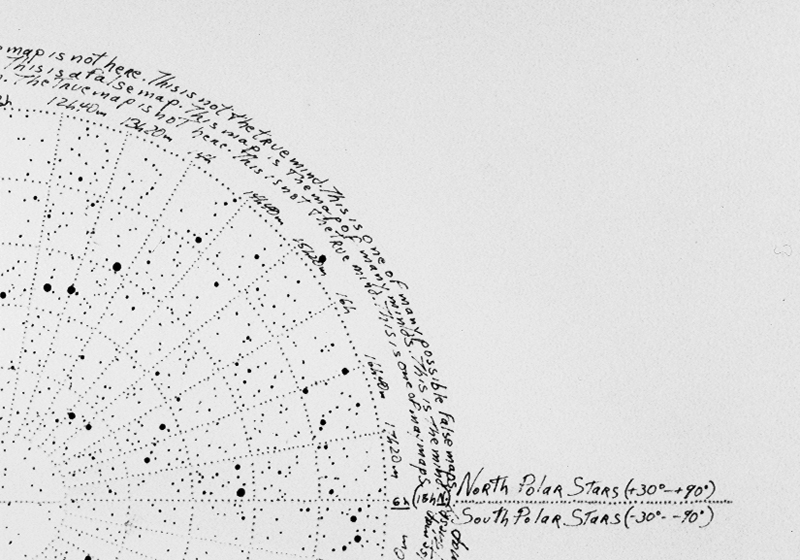 map is not here. This is not the true mind. This is one of many possible false maps.
This is a false map. This map is the map of many minds. This is the mind
The true map is not here. This is not the true mind. This is one of many maps.
12h40m
13h20m
14h
14h40m
15h20m
16h
16h40m
17h20m
6h (18h)
North Polar Stars (+30°-+90°)
South Polar Stars (-30°--90°)